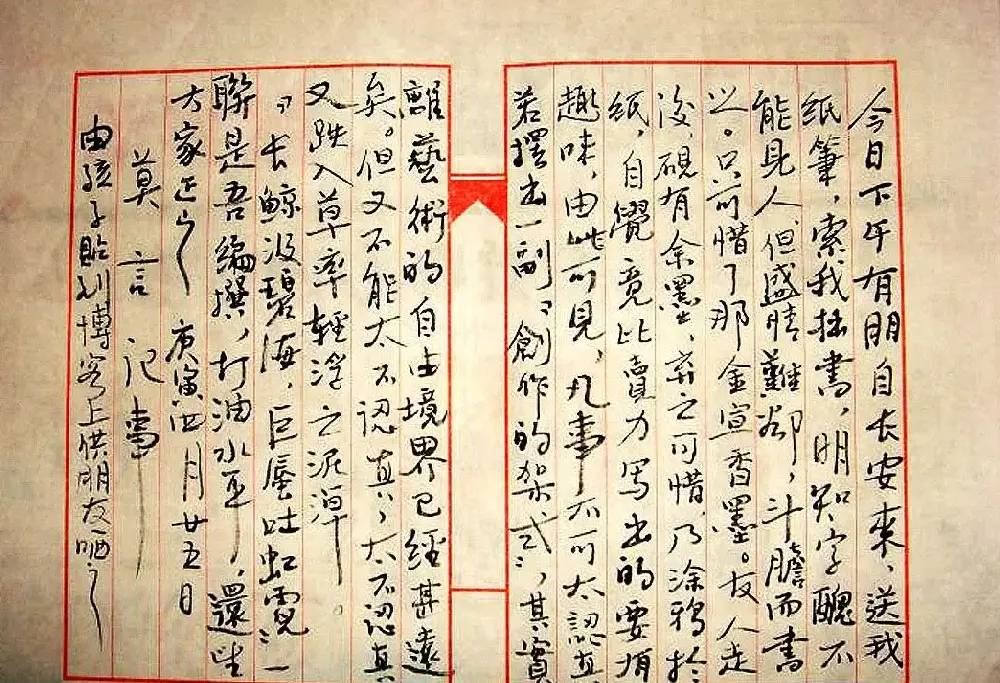 今日下午有朋自长安来，送我
纸筆，索我拙書，明知字醜不
能见人，但盛情難却，斗膽而書
之。只可惜了那金宣香墨。友人走
後，硯有余墨，弃之可惜，乃涂鸦於
纸，自覺竟比賣力写出的要有
趣味，由此可見，凡事不可太認真
若摆出一副“創作的架式”，其實
離藝術的自由境界已經甚遠
矣。但又不能太不認真，太不認真
又跌入草率輕浮之泥淖。
“长鲸汲碧海，巨蜃吐虹霓”一
聯是吾編撰，打油水平，還望
方家正之 庚寅四月廿五日
莫言記事
由孩子贴到博客上供朋友哂之